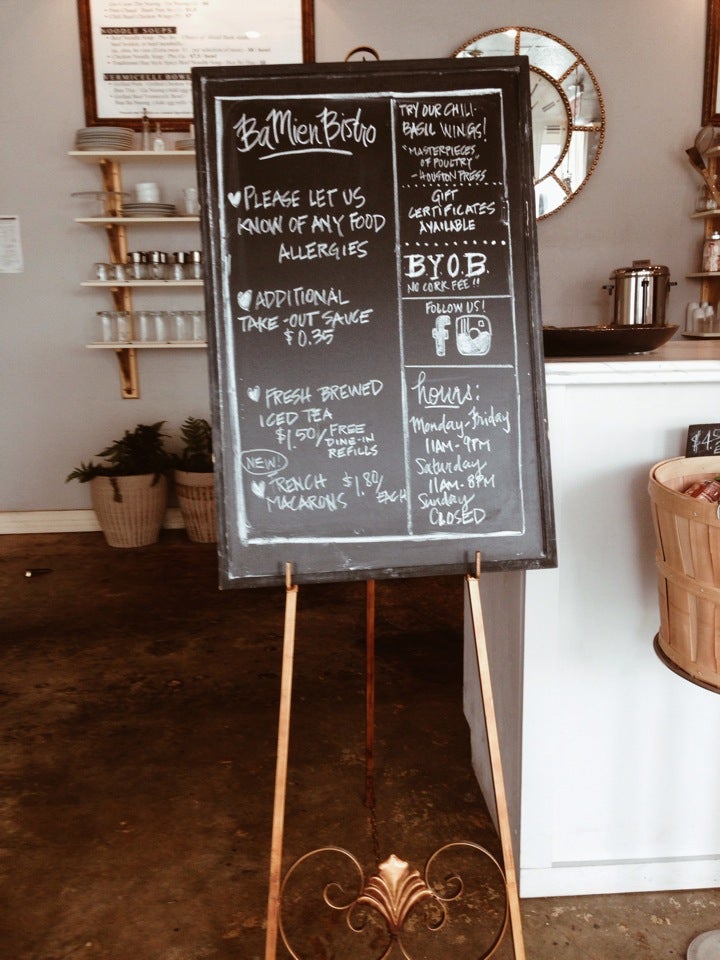 NOODLE SOUPS
VERMICELLI BOWL
Ba Mien Bistro
PLEASE LET US
KNOW OF ANY FOOD
ALLERGIES
ADDITIONAL
TAKE-OUT SAUCE
$0.35
FRESH BREWED
ICED TEA
$1.50/ FREE
DINE-IN
REFILLS
NEW!
FRENCH $1.80/
MACARONS EACH
TRY OUR CHILI-
BASIL WINGS!
"MASTERPIECES
OF POULTRY"
-HOUSTON PRESS
GIFT
CERTIFICATES
AVAILABLE
B.Y.O.B.
NO CORK FEE!!
FOLLOW US!
f
hours:
Monday-Friday
11AM-9PM
Saturday
11AM-8PM
Sunday
CLOSED